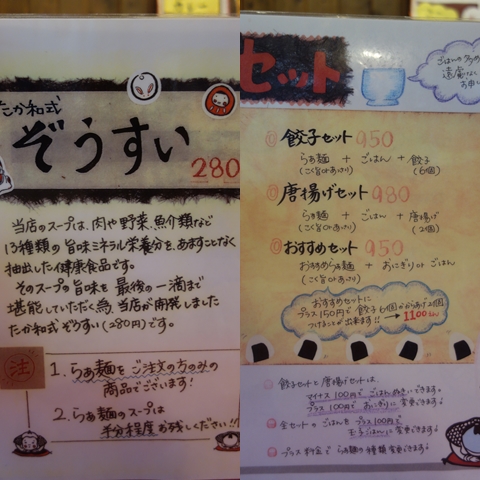 たか和式
ぞうすい
280
当店のスープは、肉や野菜、魚介類など
13種類の旨味ミネラル栄養分を、あますことなく
抽出した健康食品です。
そのスープの旨味を最後の一滴まで
堪能していただく為、当店が開発しました
たか和式ぞうすい(280円)です。
注
1. らぁ麺をご注文の方のみの
商品でございます!
2. らぁ麺のスープは
半分程度お残しください!!
セット
ごはんの
遠慮なく
餃子セット 950
らぁ麺 + ごはん + 餃子
(こく旨orあっさり) (6個)
唐揚げセット 980
らぁ麺 + ごはん + 唐揚げ
(こく旨orあっさり) (2個)
おすすめセット 950
おすすめらぁ麺 + おにぎり or ごはん
(こく旨orあっさり)
おすすめセットに
プラス150円で餃子6個かからあげ2個
つけることが出来ます!! → 1100yen
餃子セットと唐揚げセットは、
マイナス100円でごはんぬきにできます。
プラス100円でおにぎりに変更できます。
全セットのごはんをプラス100円で
玉子ごはんに変更できます。
プラス料金でらぁ麺の種類変更できます。